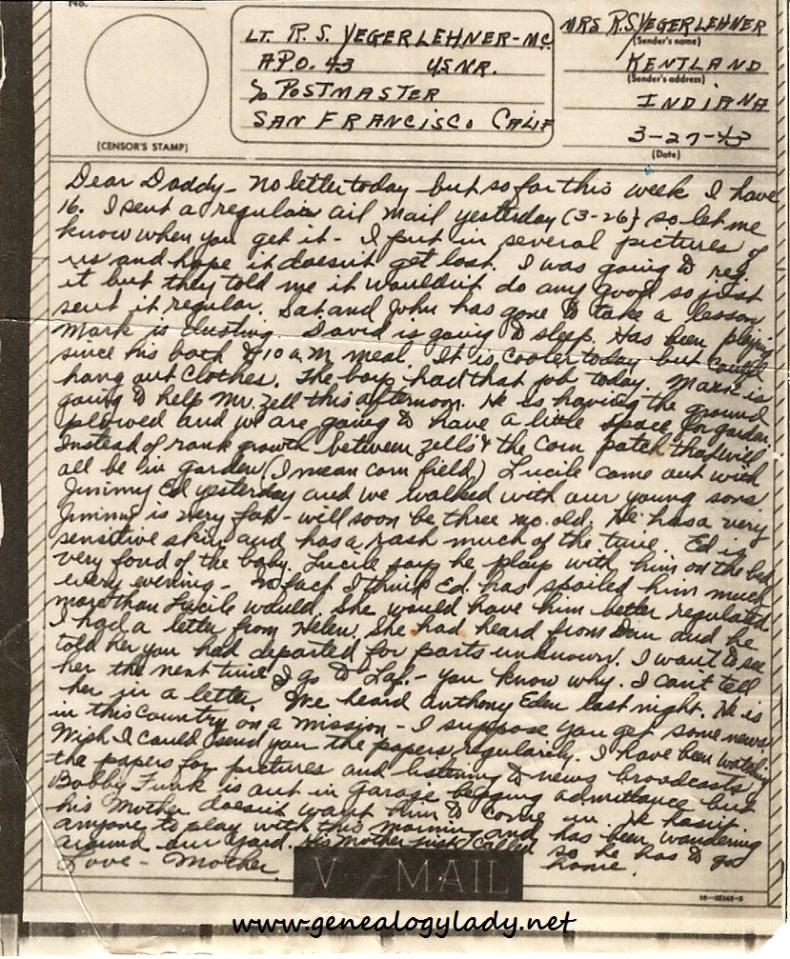 No.
(CENSOR'S STAMP)
LT. R. S. YEGERLEHNER-MC.
A.P.O. 43 USNR.
c/o POSTMASTER
SAN FRANCISCO CALIF
MRS R.S. YEGERLEHNER
(Sender's name)
KENTLAND
(Sender's address)
INDIANA
3-27-43
(Date)
Dear Daddy - No letter today - but so far this week I have
16. I sent a regular air mail yesterday (3-26) so let me
know when you get it - I put in several pictures of
us and hope it doesn't get lost. I was going to reg.
it but they told me it wouldn't do any good so just
sent it regular. Sat and John has gone to take a lesson
Mark is dusting. David is going to sleep. Has been playing
since his bath & 10 a.m. meal. It is cooler today but could
hang out clothes. The boys had that job today. Mark is
going to help Mr. Zell this afternoon. He is having the ground
plowed and we are going to have a little space for garden.
Instead of rank growth between Zell's & the corn patch that will
all be in garden (I mean corn field) Lucile came out with
Jimmy Ed yesterday and we walked with our young sons
Jimmy is very fat - will soon be three mo. old. He has a very
sensitive skin and has a rash much of the time. Ed is
very fond of the baby. Lucile says he plays with him on the bed
every evening - In fact I think Ed. has spoiled him much
more than Lucile would. She would have him better regulated
I had a letter from Helen. She had heard from Dan and he
told her you had departed for parts unknown. I want to see
her the next time I go to Laf. - you know why. I can't tell
her in a letter. We heard Anthony Eden last night. He is
in this country on a mission - I suppose you get some news.
Wish I could send you the papers regularly. I have been watching
the papers for pictures and listening to news broadcasts
Bobby Funk is out in garage begging admittance but
his Mother doesn't want him to come in. He hasn't
anyone to play with this morning and has been wandering
around our yard. His mother just called so he has to go
Love - Mother home.
V - MAIL
16-28143-2
www.genealogylady.net